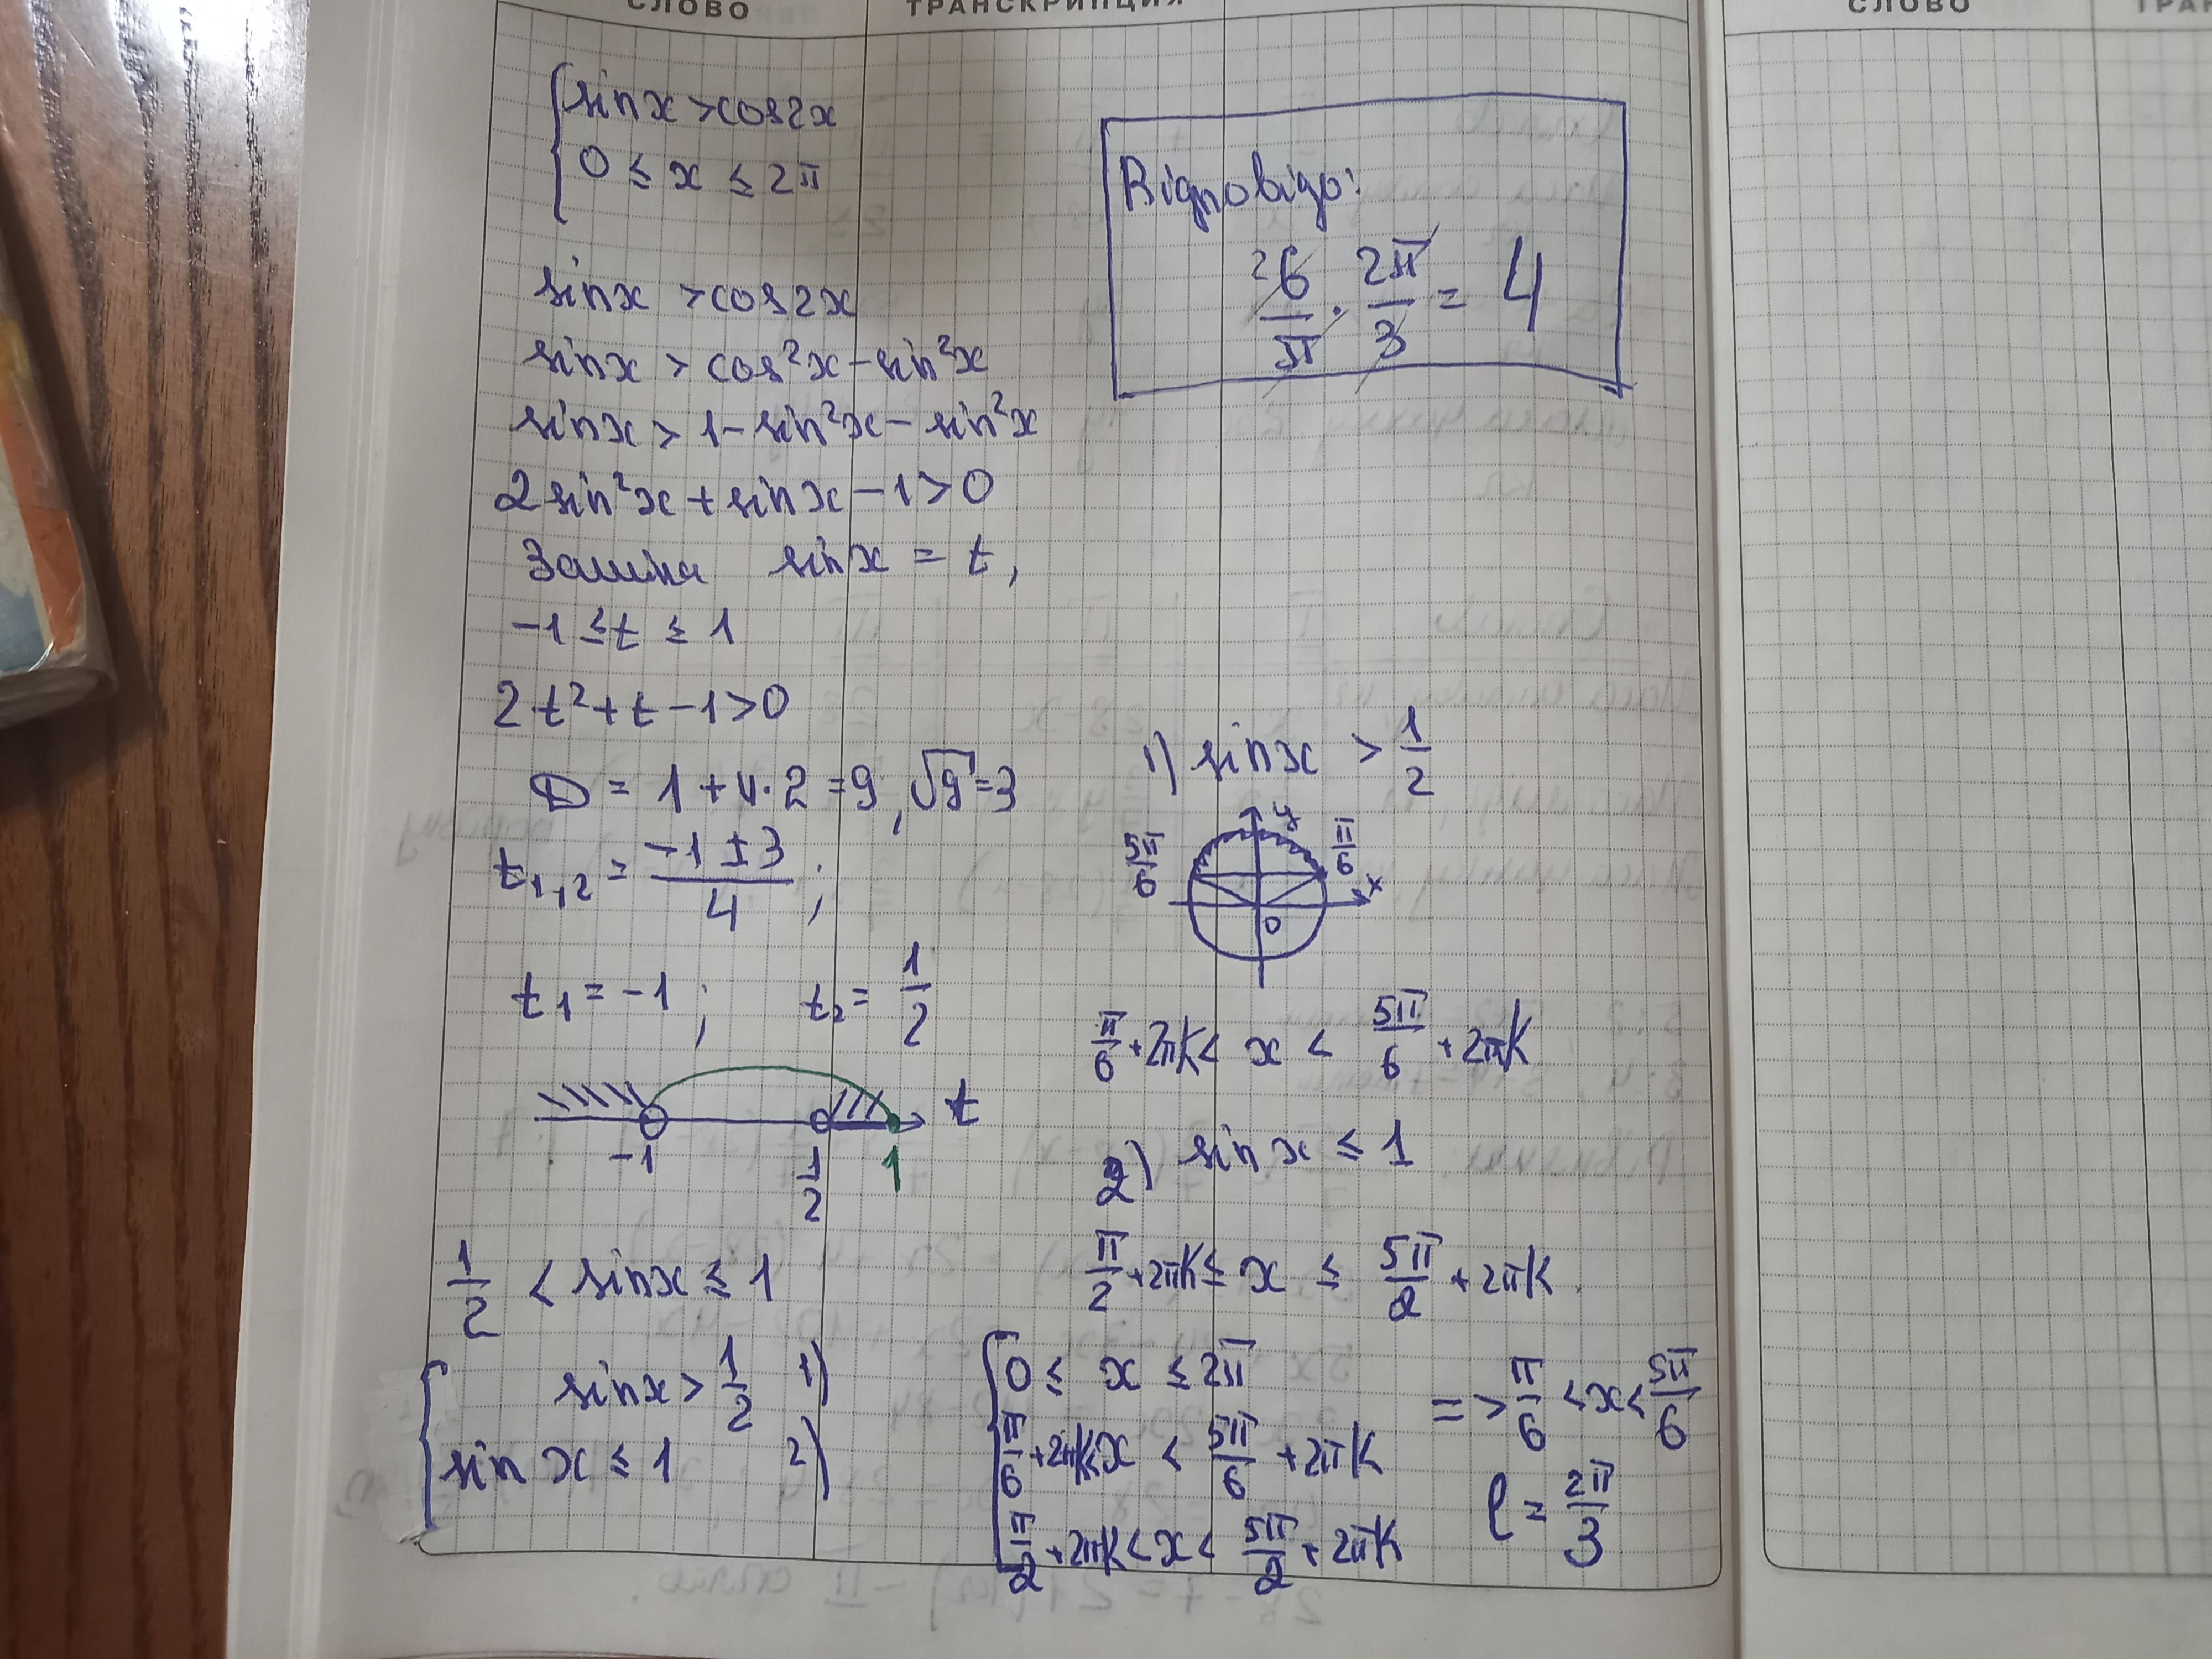 СЛОВО ТРАНСКРИПЦИЯ
СЛОВО ТРАН
sinx > cos2x
0 ≤ x ≤ 2π
sinx > cos2x
sinx > cos²x - sin²x
sinx > 1 - sin²x - sin²x
2sin²x + sinx - 1 > 0
Заміна sinx = t,
-1 ≤ t ≤ 1
2t² + t - 1 > 0
D = 1 + 4·2 = 9, √9 = 3
t₁,₂ = (-1 ± 3)/4 ;
t₁ = -1 ; t₂ = 1/2
t
-1 1/2 1
1/2 < sinx ≤ 1
sinx > 1/2 1)
sin x ≤ 1 2)
Відповідь:
6/π · 2π/3 = 4
2
1) sinx > 1/2
y
5π/6 π/6
x
0
π/6 + 2πK < x < 5π/6 + 2πK
2) sin x ≤ 1
π/2 + 2πK ≤ x ≤ 5π/2 + 2πK
0 ≤ x ≤ 2π
π/6 + 2πK < x < 5π/6 + 2πK
π/2 + 2πK < x < 5π/2 + 2πK
=> π/6 < x < 5π/6
ℓ = 2π/3